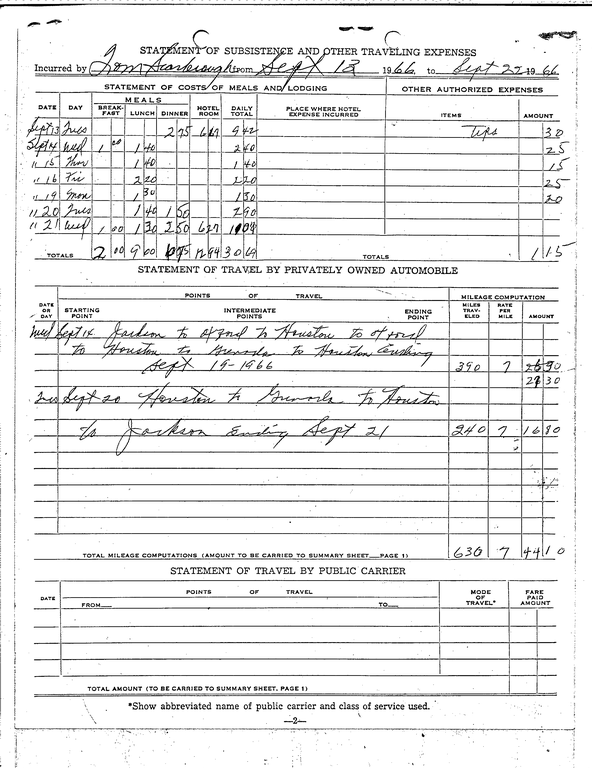 STATEMENT OF SUBSISTENCE AND OTHER TRAVELING EXPENSES
Incurred by Tom Scarbrough from Sept 13 1966 to Sept 22 1966
STATEMENT OF COSTS OF MEALS AND LODGING OTHER AUTHORIZED EXPENSES
DATE DAY MEALS BREAK-FAST LUNCH DINNER HOTEL ROOM DAILY TOTAL PLACE WHERE HOTEL EXPENSE INCURRED ITEMS AMOUNT
Sept 13 Tues 2 75 6 67 9 42 Tips 30
Sept 14 Wed 1 00 1 40 2 40 25
" 15 Thur 1 40 1 40 15
" 16 Fri 2 20 2 20 25
" 19 Mon 1 30 1 30 20
" 20 Tues 1 40 1 50 2 90
" 21 Wed 1 00 1 30 2 50 6 27
TOTALS 2 00 9 00 12 94 30 69 TOTALS 1 15
STATEMENT OF TRAVEL BY PRIVATELY OWNED AUTOMOBILE
DATE OR DAY POINTS OF TRAVEL MILEAGE COMPUTATION
STARTING POINT INTERMEDIATE POINTS ENDING POINT MILES TRAV-ELED RATE PER MILE AMOUNT
Wed Sept 14 Jackson to Oxford to Houston to Oxford
to Houston to Grenada to Houston Ending
Sept 19-1966 390 7
27 30
Tues Sept 20 Houston to Grenada to Houston
to Jackson Ending Sept 21 240 7 16 80
TOTAL MILEAGE COMPUTATIONS (AMOUNT TO BE CARRIED TO SUMMARY SHEET PAGE 1) 630 7 44 10
STATEMENT OF TRAVEL BY PUBLIC CARRIER
DATE POINTS OF TRAVEL MODE OF TRAVEL* FARE PAID AMOUNT
FROM TO
TOTAL AMOUNT (TO BE CARRIED TO SUMMARY SHEET, PAGE 1)
*Show abbreviated name of public carrier and class of service used.
—2—